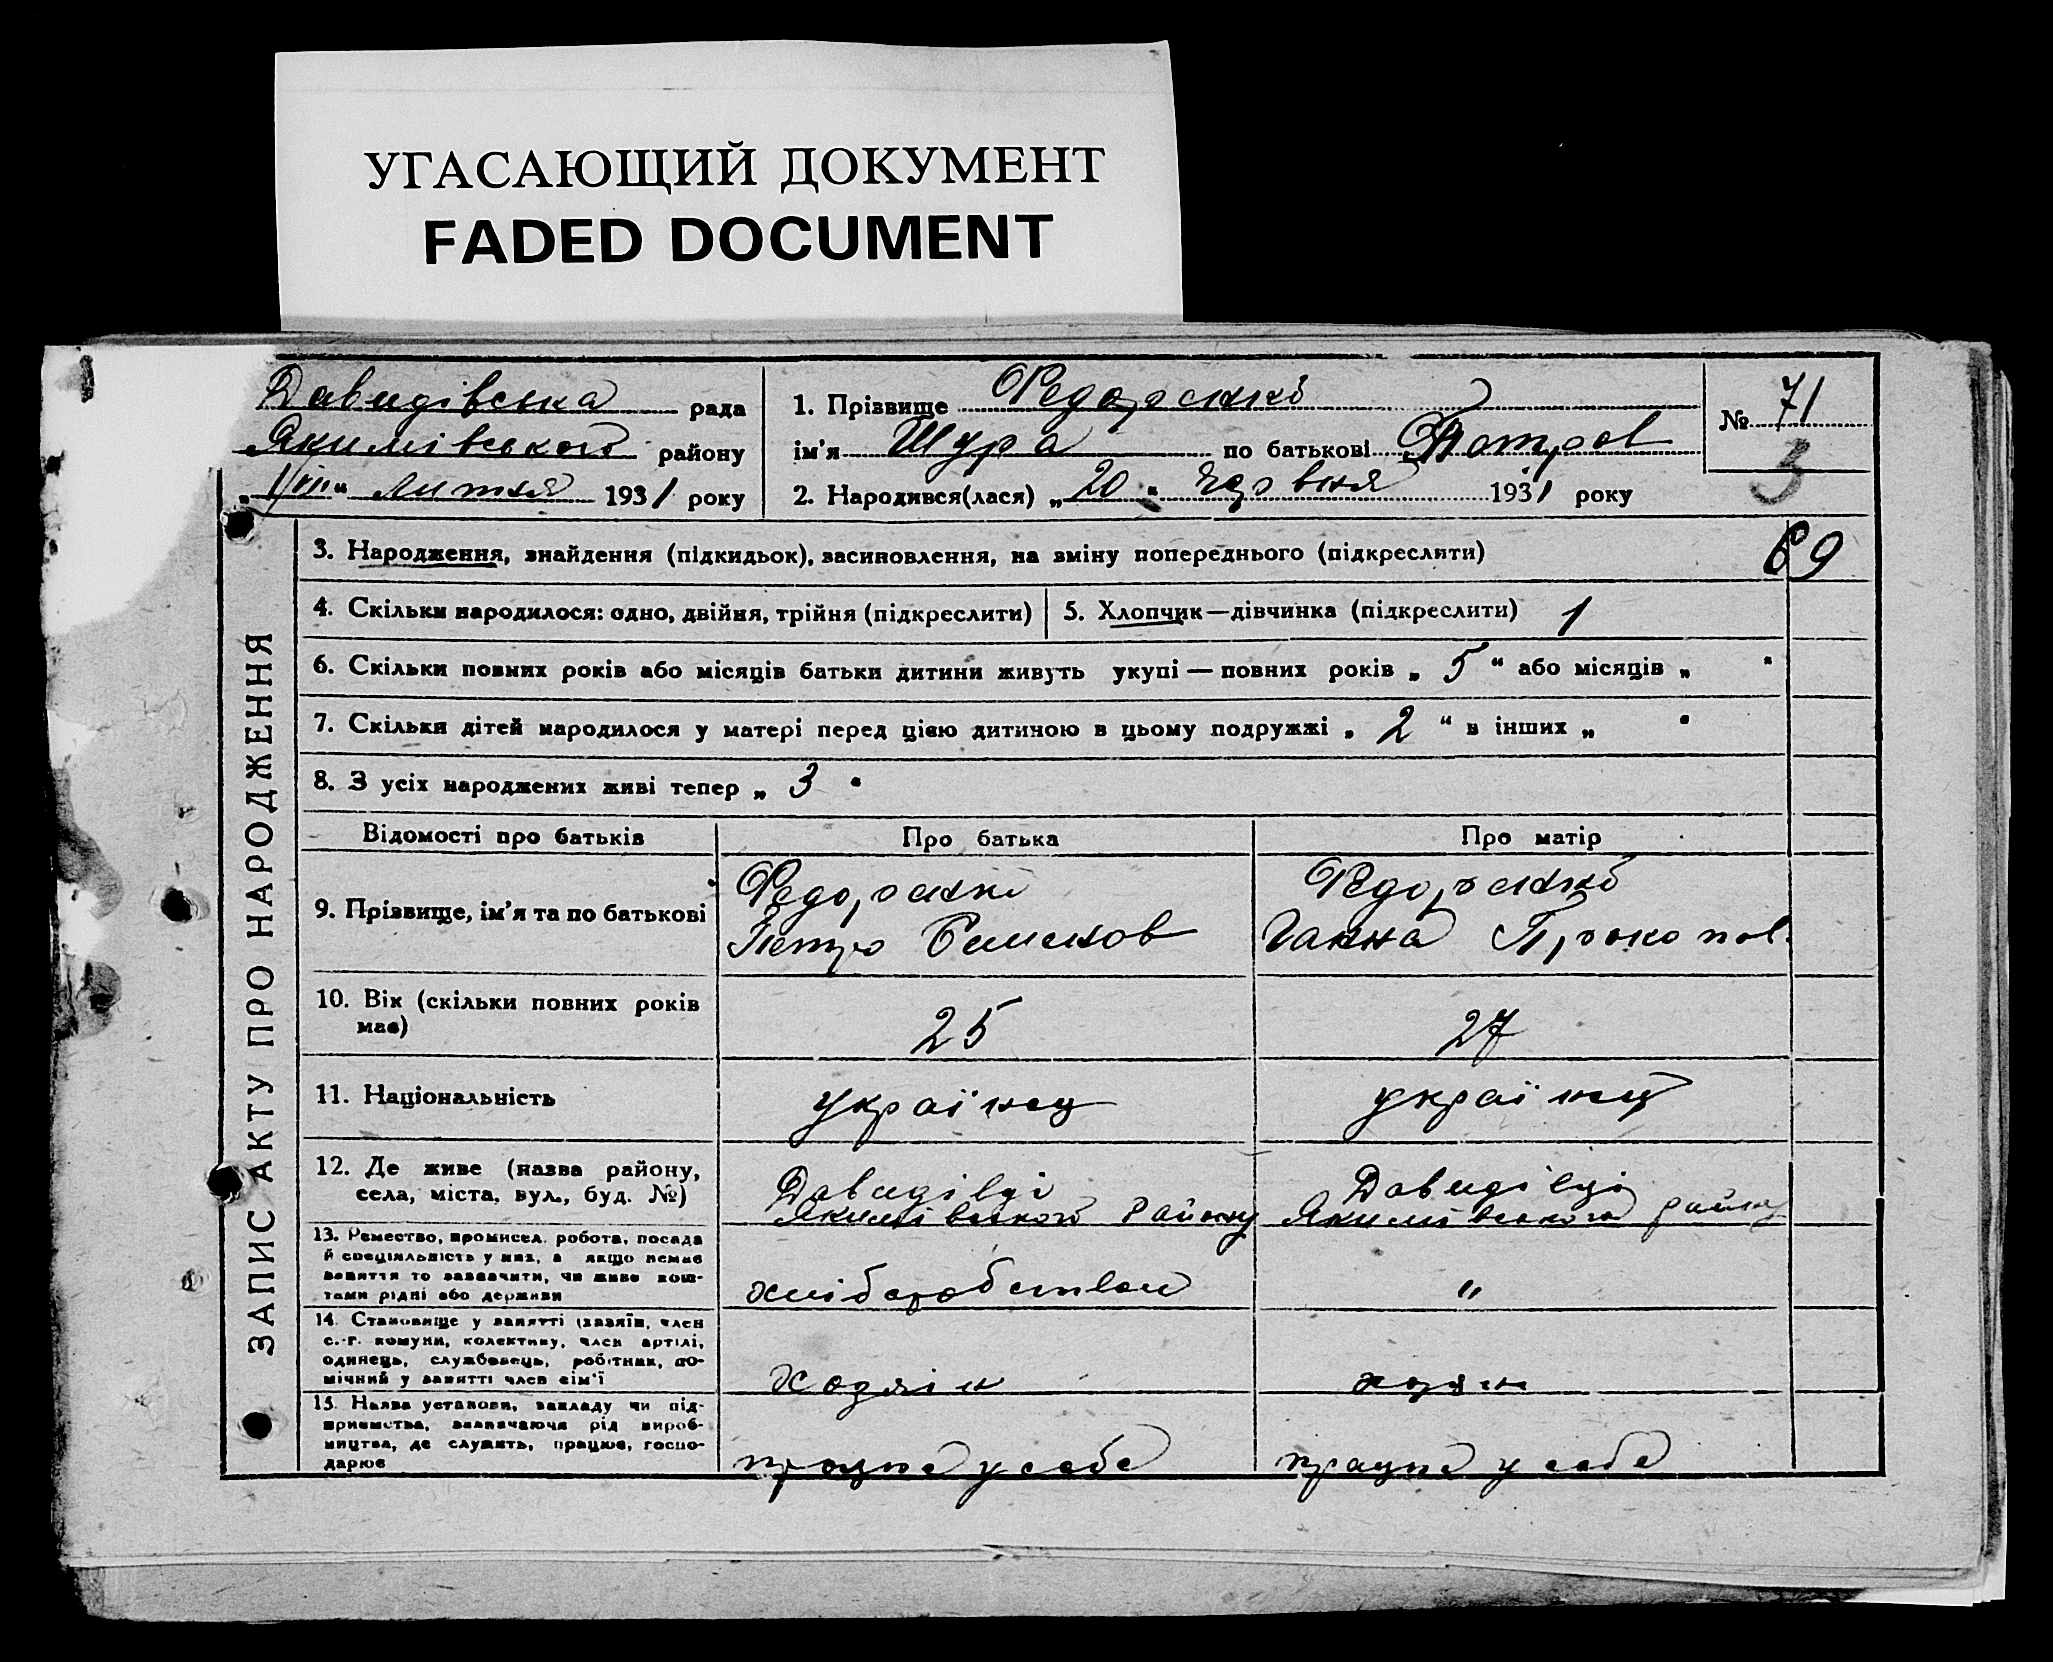 УГАСАЮЩИЙ ДОКУМЕНТ
FADED DOCUMENT
Давидівська рада
Якимівського району
„1/VII“ липня 1931 року
1. Прізвище Федоренко
ім'я Шура по батькові Петров
2. Народився(лася) „20“ червня 1931 року
№ 71
3
69
ЗАПИС АКТУ ПРО НАРОДЖЕННЯ
3. Народження, знайдення (підкидьок), засиновлення, на зміну попереднього (підкреслити)
4. Скільки народилося: одно, двійня, трійня (підкреслити)
5. Хлопчик—дівчинка (підкреслити) 1
6. Скільки повних років або місяців батьки дитини живуть укупі — повних років „ 5 “ або місяців „ “
7. Скільки дітей народилося у матері перед цією дитиною в цьому подружжі „ 2 “ в інших „ “
8. З усіх народжених живі тепер „ 3 “
Відомості про батьків
Про батька
Про матір
9. Прізвище, ім'я та по батькові
Федоренко
Петро Семенов
Федоренко
Ганна Прокопов.
10. Вік (скільки повних років
має)
25
27
11. Національність
українец
українец
12. Де живе (назва району,
села, міста, вул., буд. №)
Давидівці
Якимівського району
Давидівці
Якимівського району
13. Ремество, промисел, робота, посада
й спеціяльність у них, а якщо немає
заняття то зазначити, чи живе кош-
тами рідні або держави
хліборобством
"
14. Становище у занятті (хазяїн, член
с.-г. комуни, колективу, член артілі,
одинець, службовець, робітник, по-
мічний у занятті член сім'ї
хозяін
15. Назва установи, закладу чи під-
приємства, зазначаючи рід вироб-
ництва, де служить, працює, госпо-
дарює
працює у себе
працює у себе